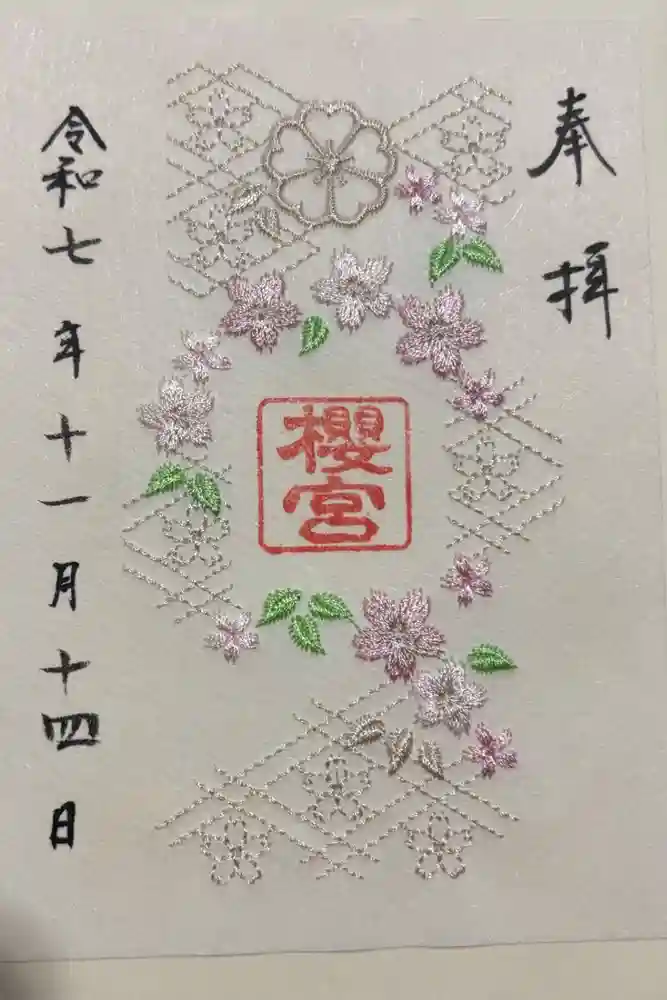 奉拝
櫻宮
令和七年十一月十四日